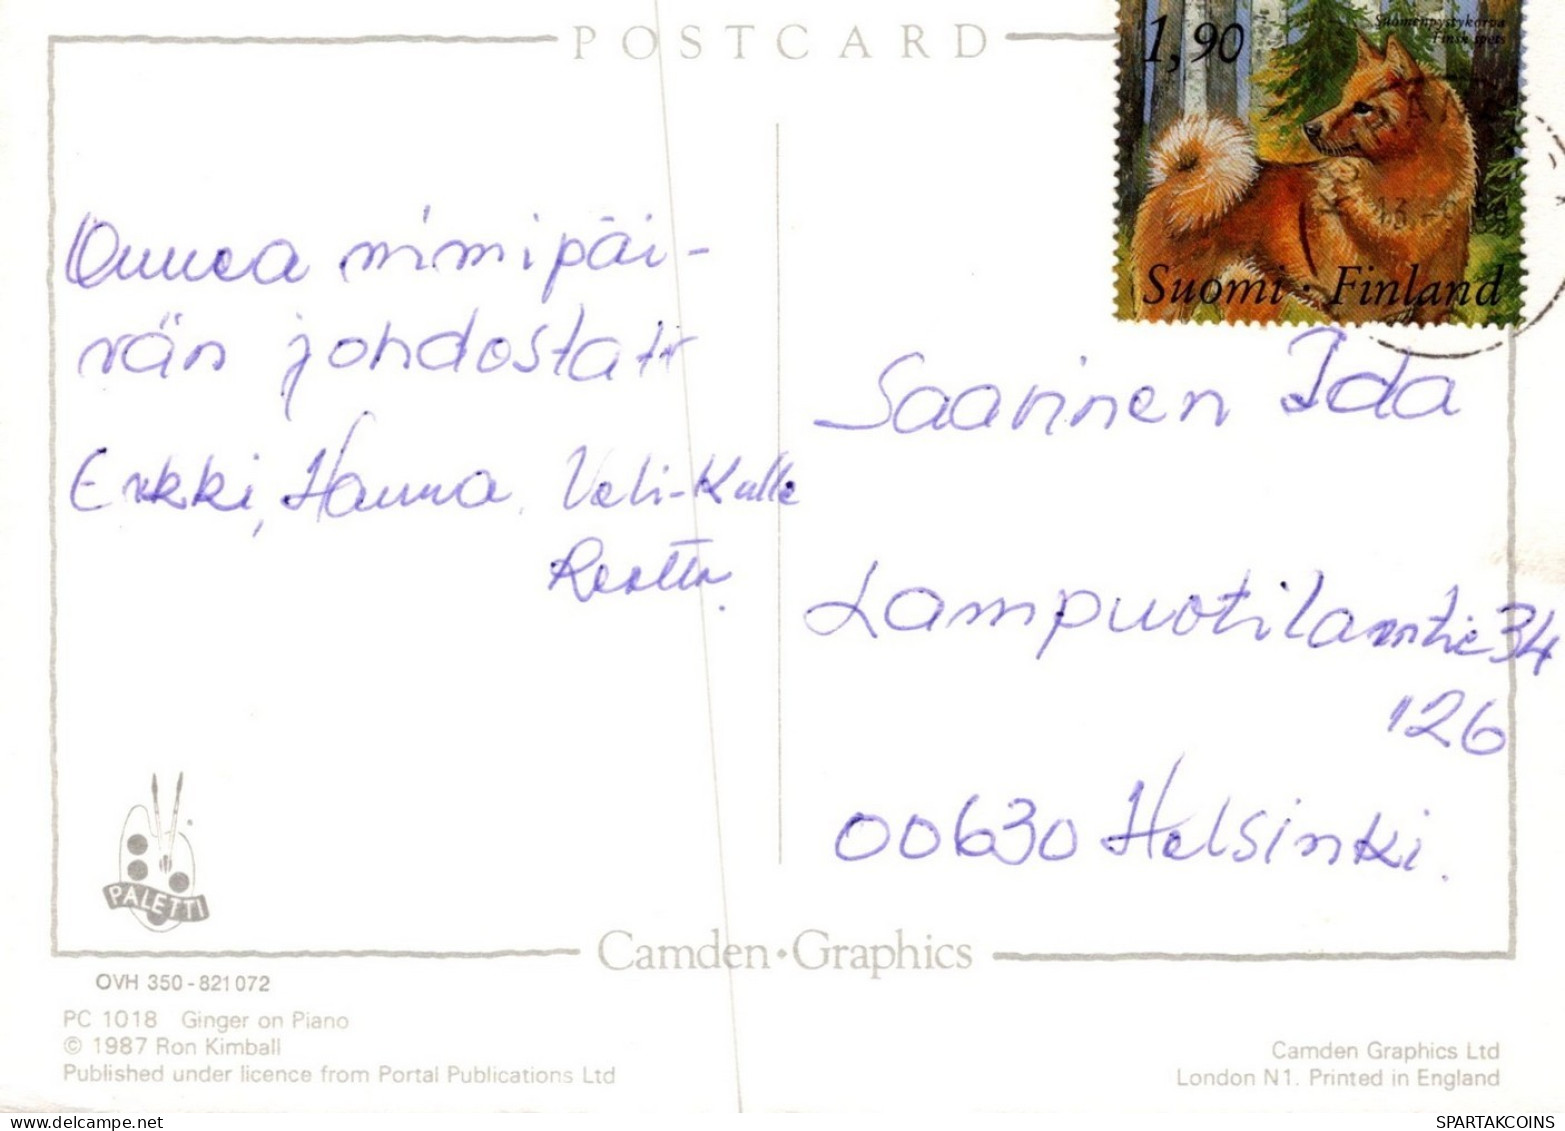 POSTCARD
1,90
Suomenpystykorva
Finsk spets
Suomi · Finland
Onnea nimipäi-
vän johdostatt
Erkki, Hanna, Veli-Kalle
Reetta.
Saarinen Ida
Lampuotilantie 34
126
00630 Helsinki.
PALETTI
Camden·Graphics
OVH 350-821072
PC 1018 Ginger on Piano
© 1987 Ron Kimball
Published under licence from Portal Publications Ltd
Camden Graphics Ltd
London N1. Printed in England
SPARTAKCOINS